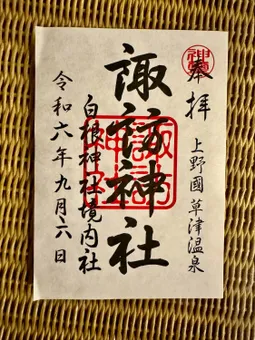 奉拝
上野國草津温泉
諏訪神社
白根神社境内社
令和六年九月六日